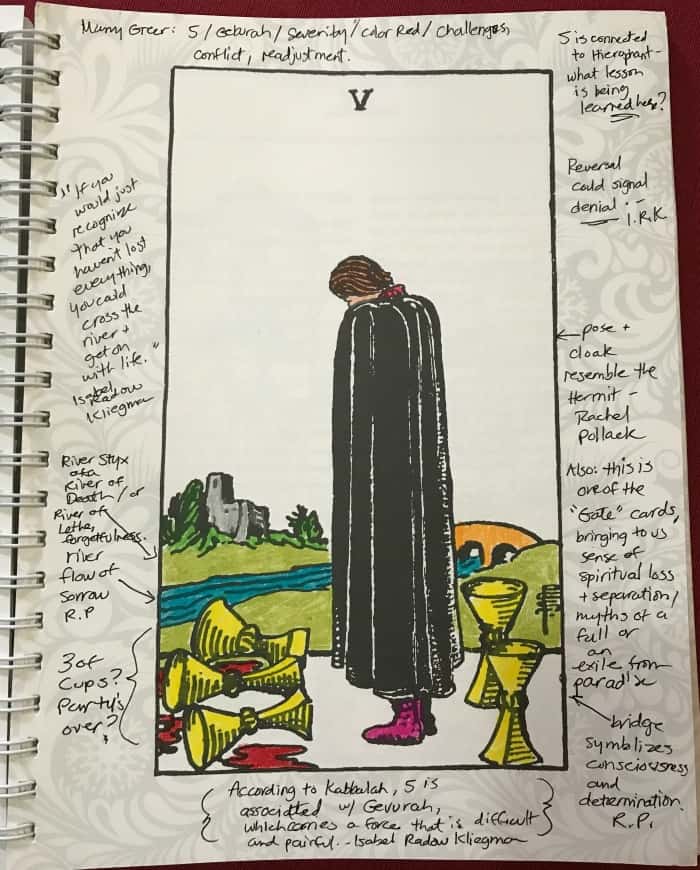 Mary Greer: 5 / Geburah / Severity / color Red / Challenges,
conflict, readjustment.
V
5 is connected
to Hierophant -
what lesson
is being
learned here?
Reversal
could signal
denial --
I.R.K
← pose +
cloak
resemble the
Hermit -
Rachel
Pollack
Also: this is
one of the
"Gate" cards,
bringing to us
sense of
spiritual loss
+ separation /
myths of a
fall or
an
exile from
paradise
bridge
symblizes
consciousness
and
determination.
R.P.
"If you
would just
recognize
that you
haven't lost
everything,
you could
cross the
river +
get on
with life."
Isabel
Radow
Kliegman
River Styx
aka
River of
Death / or
River of
Lethe,
forgetfulness.
river
flow of
sorrow
R.P
3 of
Cups?
Party's
over?
According to Kabbalah, 5 is
associated w/ Gevurah,
which comes a force that is difficult
and painful. - Isabel Radow Kliegman